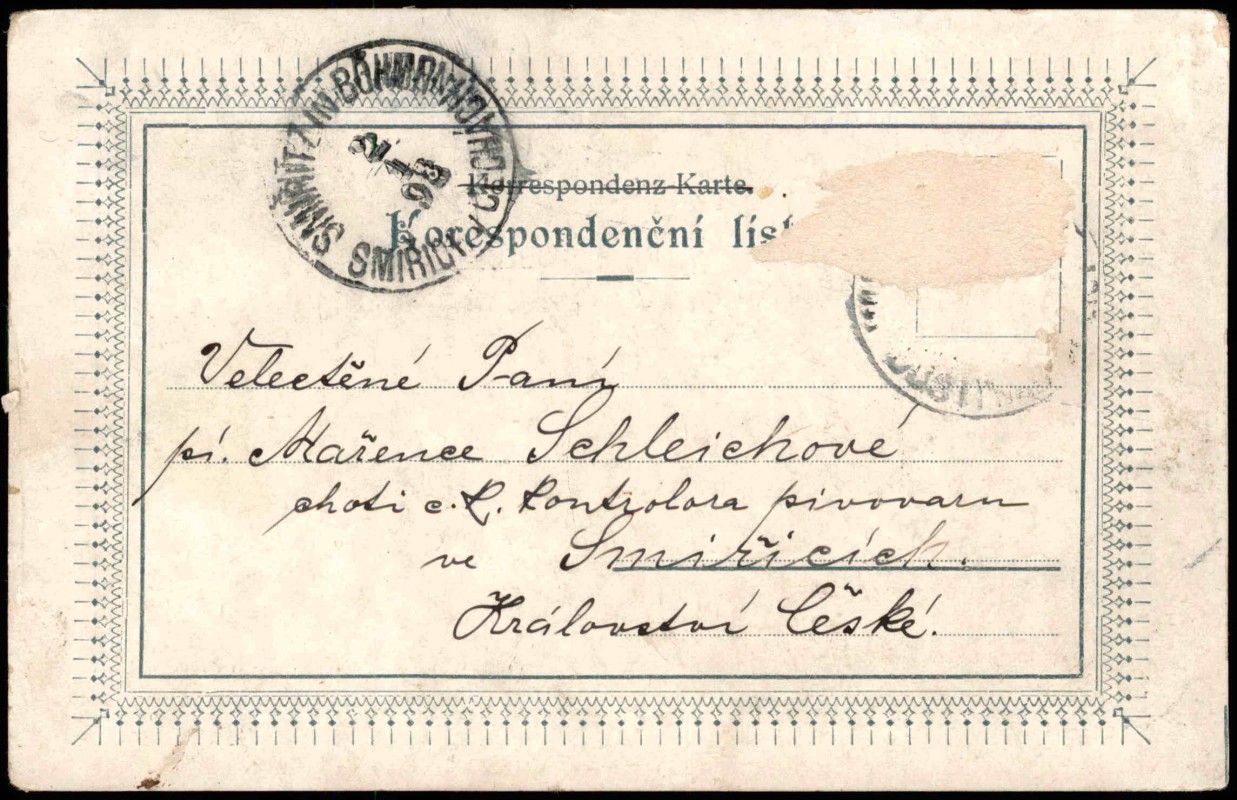 SMIŘITZ IN BÖHMEN
SMIŘICE V ČECHÁCH
98
Korrespondenz-Karte.
Korespondenční líst
Velectěné Paní
pí. Mařence Schleichové
choti c. k. kontrolora pivovaru
ve Smiřicích.
Království České.